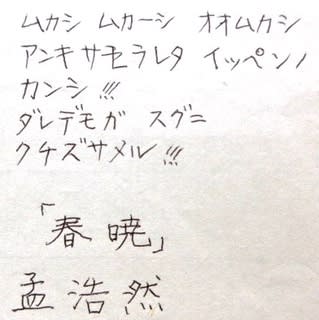 ムカシ ムカーシ オオムカシ
アンキサセラレタ イッペンノ
カンシ!!!
ダレデモガ スグニ
クチズサメル!!!
「春暁」
孟浩然